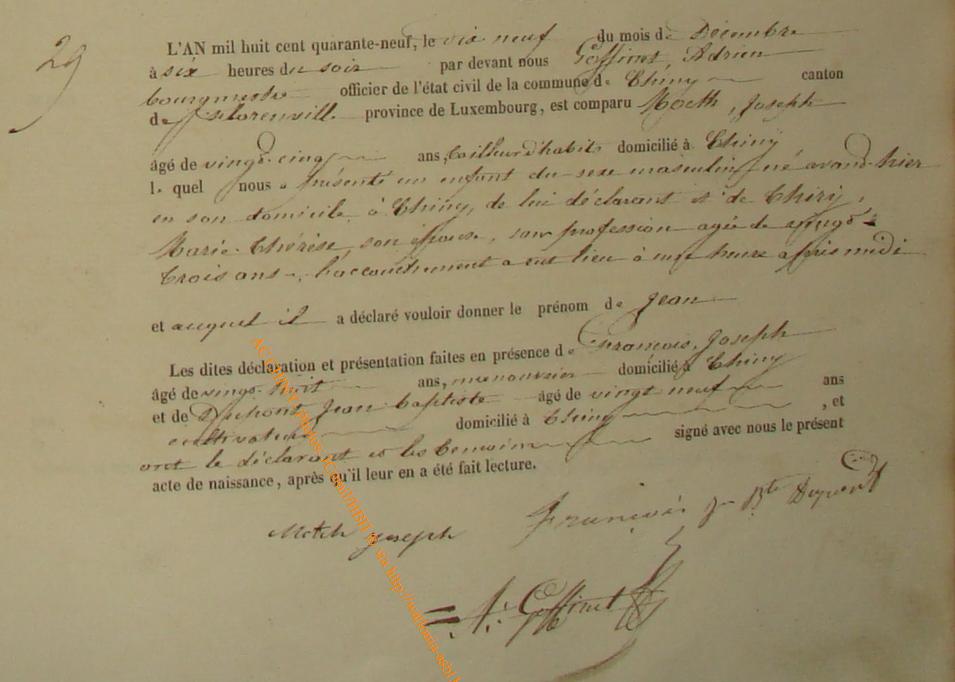 29
L'AN mil huit cent quarante-neuf, le dix neuf du mois de Décembre
à six heures du soir par devant nous Goffinet, Adrien
bourgmestre officier de l'état civil de la commune de Chiny canton
de Florenville province de Luxembourg, est comparu Joseph
âgé de vingt-cinq ans, tailleur d'habits domicilié à Chiny
lequel nous a présenté un enfant du sexe masculin, né avant-hier
en son domicile à Chiny, de lui déclarant et de Thiry,
Marie-Thérèse, son épouse, sans profession agée de vingt-
trois ans, l'accouchement a eut lieu à une heure après midi
et auquel il a déclaré vouloir donner le prénom de Jean
Les dites déclaration et présentation faites en présence de François, Joseph
âgé de vingt huit ans, manouvrier domicilié à Chiny
et de Dupont, Jean Baptiste âgé de vingt neuf ans
cultivateur domicilié à Chiny , et
ont le déclarant et les témoins signé avec nous le présent
acte de naissance, après qu'il leur en a été fait lecture.
Joseph François J Bte Dupont
A: Goffinet